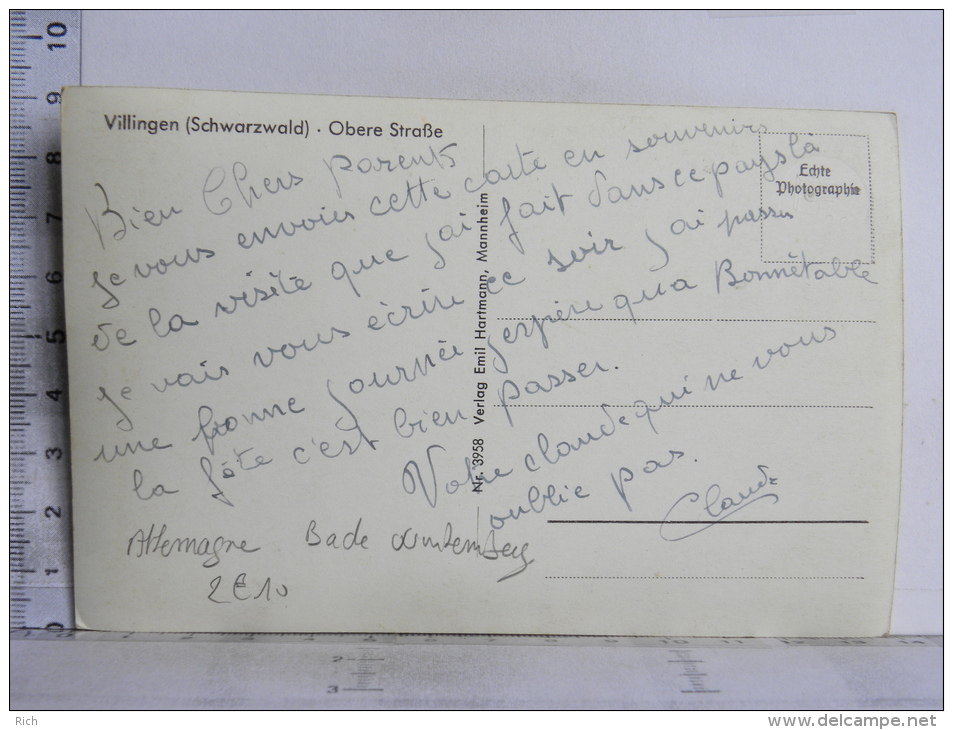 Villingen (Schwarzwald) · Obere Straße
Echte
Photographie
Nr. 3958 Verlag Emil Hartmann, Mannheim
Bien Chers parents
Je vous envoies cette carte en souvenirs
de la visite que j'ai fait dans ce pays là
Je vais vous écrire ce soir j'ai passer
une bonne journée j'espère qu a Bonnétable
la fête c'est bien passer.
Votre claude qui ne vous
oublie pas.
Claude
Allemagne Bade
2€10
10
9
8
7
6
5
4
3
2
1
Rich
www.delcampe.net